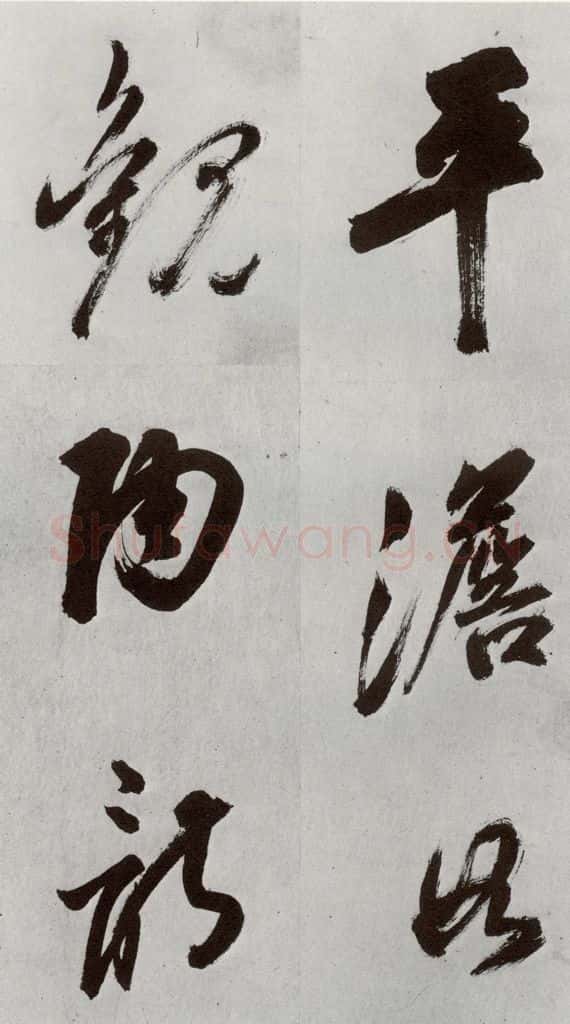 平澹
觀陶
Shufawang.CN